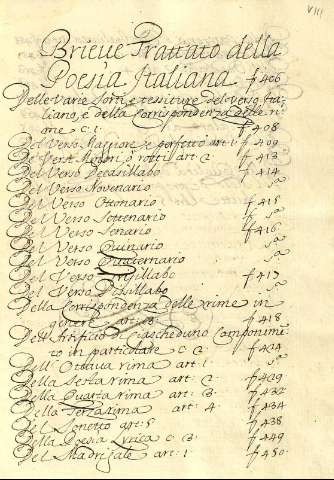 VIII
Brieue Trattato della
Poesia Italiana f 406
Delle Varie Sorti, e testure del verso Ita-
liano, e della Corrispondenza delle ri-
me c 1. f 408
Del Verso Maggiore e perfetto art: 1. f 409
Del Versi Minori, o rotti art: 2. f 413
Del Verso Decasillabo f 414
Del Verso Novenario sa
Del Verso Ottonario f 415
Del Verso Settenario sa
Del Verso Senario f 416
Del Verso Quinario sa
Del Verso Quaternario sa
Del Verso Trisillabo f 417
Del Verso Disillabo sa
Della Corrispondenza delle rime in
genere art: 3. f 418
Dell'Artificio di ciascheduno Componimē
to in particolare c 2. f 424
Dell'Ottava rima art: 1. sa
Della Sesta rima art: 2. f 429
Della Quarta rima art: 3. f 432
Della Terza rima art: 4. f 434
Del Sonetto art: 5. f 438
Della Poesia Lyrica c 3. f 449
Del Madrigale art: 1. f 450.